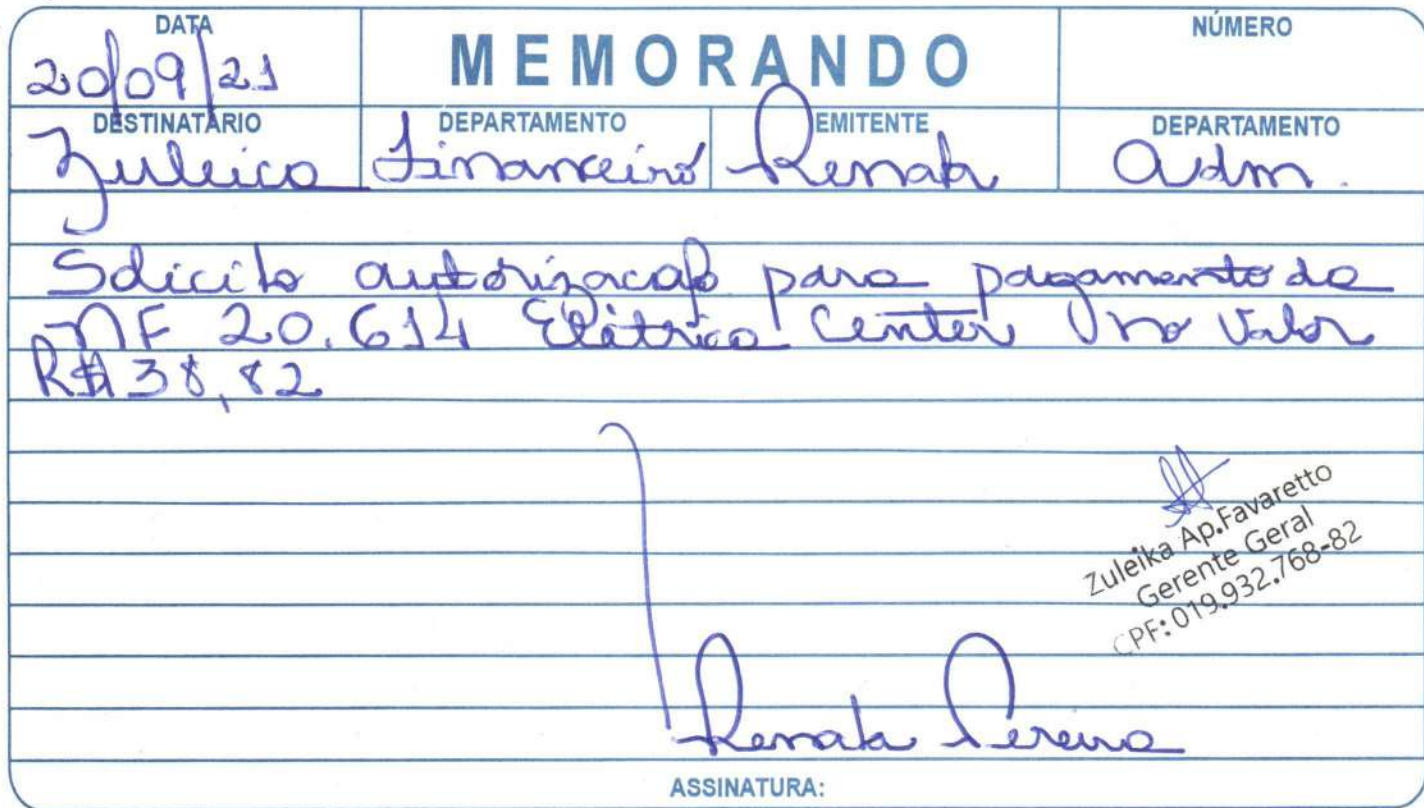 DATA
20/09/21
MEMORANDO
NÚMERO
DESTINATÁRIO
Zuleica
DEPARTAMENTO
Financeiro
EMITENTE
Renata
DEPARTAMENTO
Adm.
Solicito autorização para pagamento da
NF 20.614 Elétrica Center no Valor
R$ 38,82
Zuleika Ap.Favaretto
Gerente Geral
CPF: 019.932.768-82
Renata Pereira
ASSINATURA: